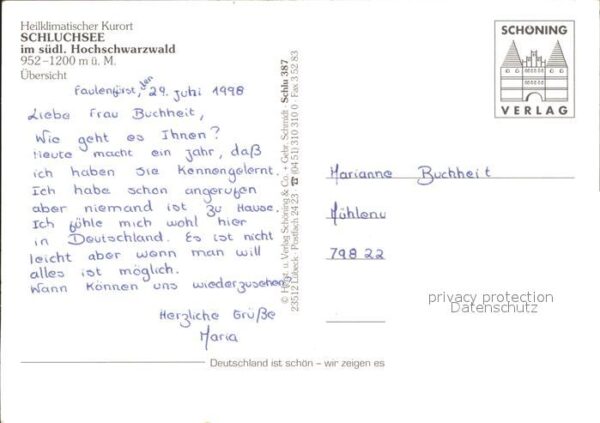 Heilklimatischer Kurort
SCHLUCHSEE
im südl. Hochschwarzwald
952–1200 m ü. M.
Übersicht
Faulenfürst, den 29. Juni 1998
Liebe Frau Buchheit,
Wie geht es Ihnen?
Heute macht ein jahr, daß
ich haben Sie Kennengelernt.
Ich habe schon angerufen
aber niemand ist zu Hause.
Ich fühle mich wohl hier
in Deutschland. Es ist nicht
leicht aber wenn man will
alles ist möglich.
Wann Können uns wiederzusehen
Herzliche Grüße
Maria
© Herst. u. Verlag Schöning & Co. + Gebr. Schmidt · Schlu 387
23512 Lübeck · Postfach 24 23 · ☎ (04 51) 310 310 0 · Fax 3 52 83
SCHÖNING
VERLAG
Marianne Buchheit
79822
privacy protection
Datenschutz
Deutschland ist schön – wir zeigen es